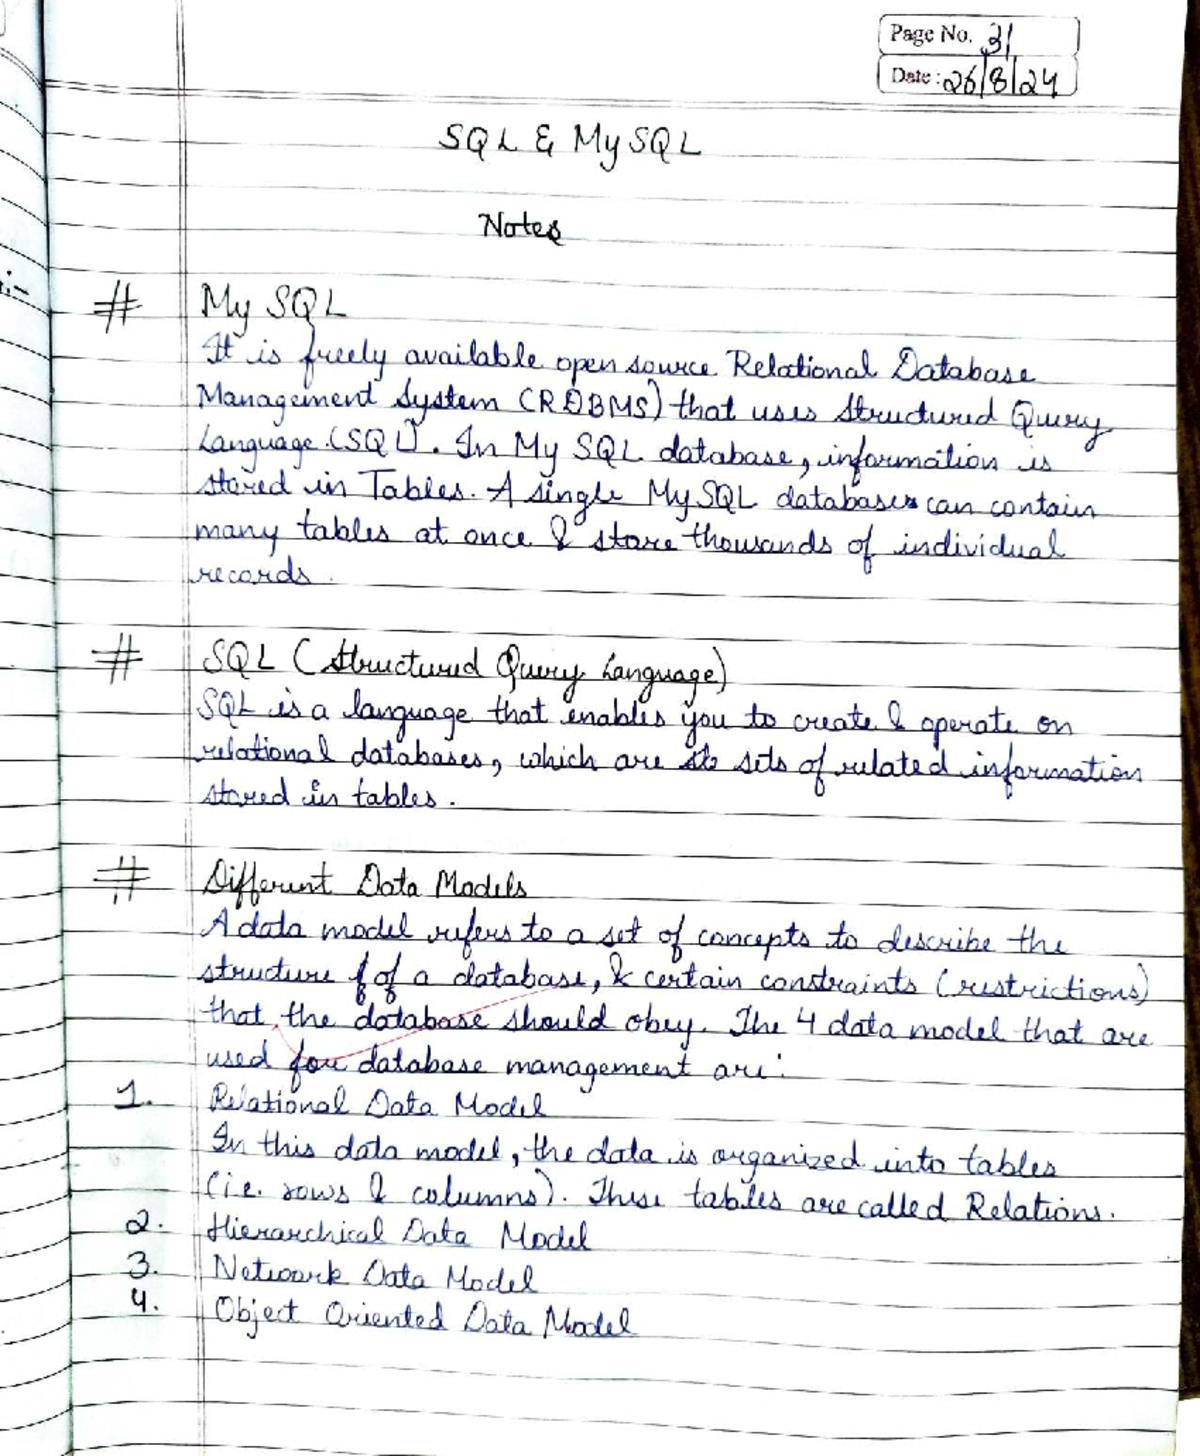 Page No. 31
Date: 26/8/24
SQL & My SQL
Notes
:-
# My SQL
It is freely available open source Relational Database
Management System (RDBMS) that uses Structured Query
Language (SQL). In My SQL database, information is
stored in Tables. A single My SQL database can contain
many tables at once & store thousands of individual
records.
# SQL (Structured Query Language)
SQL is a language that enables you to create & operate on
relational databases, which are sets of related information
stored in tables.
# Different Data Models
A data model refers to a set of concepts to describe the
structure of a database, & certain constraints (restrictions)
that the database should obey. The 4 data model that are
used for database management are:
1. Relational Data Model
In this data model, the data is organized into tables
(i.e. rows & columns). These tables are called Relations.
2. Hierarchical Data Model
3. Network Data Model
4. Object Oriented Data Model